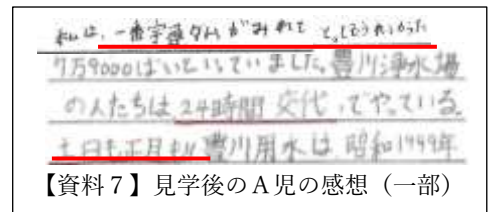 私は、一番宇連ダムがみれて とってもうれしかった
7万9000ばいといっていました。豊川浄水場
の人たちは24時間 交代、でやっている。
土日も正月も!! 豊川用水は 昭和1949年
【資料7】見学後のA児の感想(一部)